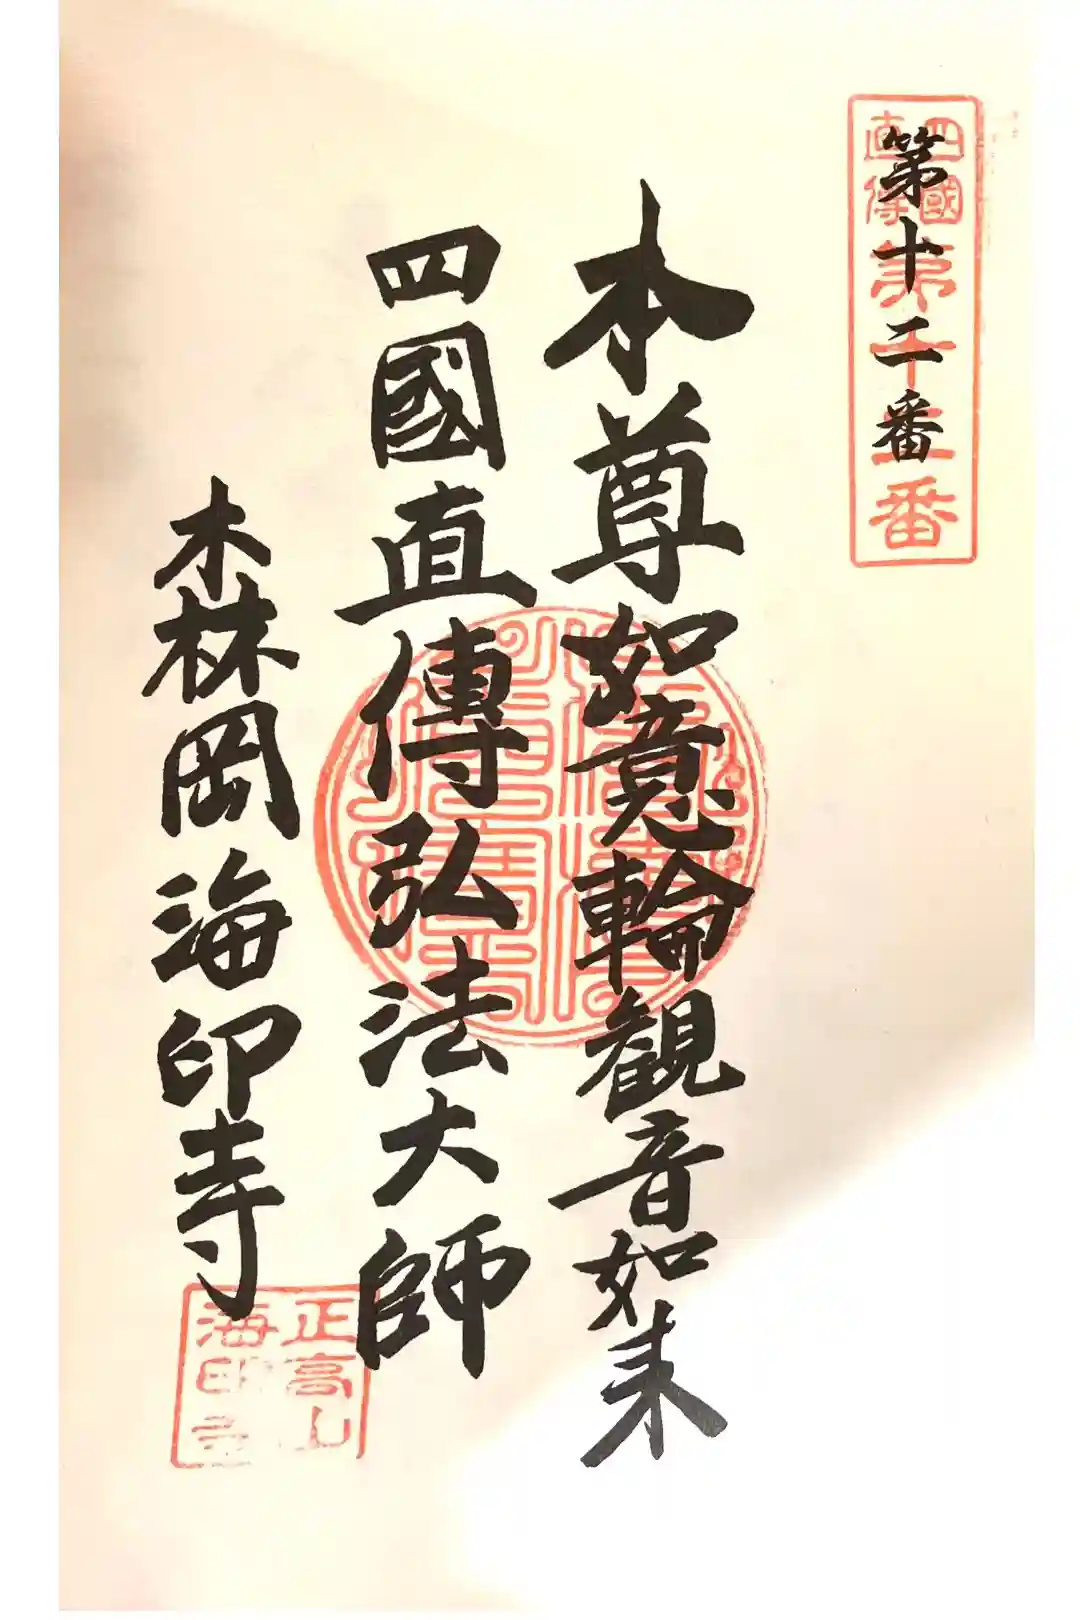 第十二番
四國
直傳
第十二番
本尊如意輪観音如来
四國直傳弘法大師
森岡海印寺
正高山
海印